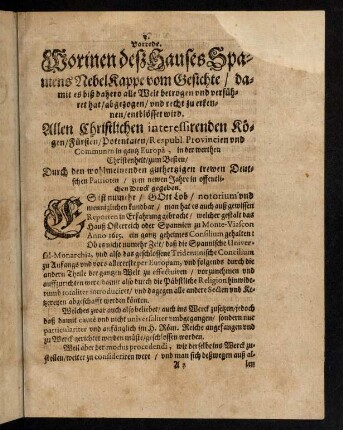 Vorrede.
Worinen deß Hauses Spa-
niens Nebel Kappe vom Gesichte / da-
mit es biß dahero alle Welt betrogen vnd verfüh-
ret hat / abgezogen / vnd recht zu erken-
nen / entblösset wird.
Allen Christlichen interessirenden Kö-
gen / Fürsten / Potentaten / Respubl. Provincien vnd
Communen in gantz Europa, in der werthen
Christenheit / zum Besten /
Durch den wohlmeinenden guthertzigen trewen Deut-
schen Patrioten / zum newen Jahre in offentli-
chen Druck gegeben.
ES ist nunmehr / GOtt Lob / notorium vnd
menniglichen kundbar / man hat es auch auß gewissen
Reporten in Erfahrung gebracht / welcher gestalt das
Hauß Österreich oder Spannien zu Monte-Viascon
Anno 1625. ein gantz geheimes Consilium gehalten:
Ob es nicht numehr Zeit / daß die Spannische Univer-
sal-Monarchia, vnd also das geschlossene Tridentinische Concilium
zu Anfangs vnd vors allererste per Europam, vnd folgends durch die
andern Theile der gantzen Welt zu effectuiren / vorzunehmen vnd
auffzurichten were / damit also durch die Päbstliche Religion hinwide-
rumb totaliter introducirt / vnd dagegen alle andere Secten vnd Ke-
tzereyen abgeschafft werden könten.
Welches zwar auch also beliebet / auch ins Werck zusetzen / jedoch
daß damit cautè vnd nicht universaliter vmbgegangen / sondern nur
particulariter vnd anfänglich im H. Röm. Reiche angefangen vnd
zu Werck gerichtet werden müste / geschlossen worden.
Weil aber der modus procedendi, wie derselbe ins Werck zu-
stellen / weiter zu consideriren were / vnd man sich deßwegen auß al-
len